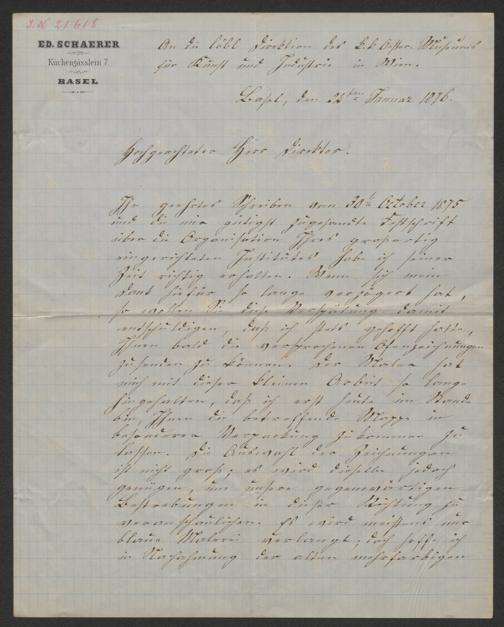 J.N 21618
ED. SCHAERER
Küchengässlein 7.
BASEL
An die löbl Direktion des k.k. Oester. Museums
für Kunst und Industrie in Wien.
Basel, den Januar 1876.
Hochgeachteter Herr Direktor.
Ihr geehrtes Schreiben vom 30t October 1875
und die mir gütigst zugesandte Festschrift
über die Organisation Ihres großartig
eingerichteten Institutes hab ich seiner
Zeit richtig erhalten. Wenn sich mein
Dank hiefür so lange verzögert hat,
so wollen Sie diese Verspätung damit
entschuldigen, daß ich stets gehofft hatte,
Ihnen bald die versprochenen Ofenzeichnungen
zusenden zu können. Der Maler hat
mich mit dieser kleinen Arbeit so lange
hingehalten, daß ich erst heute im Stande
bin, Ihnen die betreffende Mappe in
besonderer Verpackung zukommen zu
lassen. Die Auswahl der Zeichnungen
ist nicht groß; es wird dieselbe jedoch
genügen, um unsere gegenwärtigen
Bestrebungen in dieser Richtung zu
veranschaulichen. Es wird meistens nur
blaue Malerei verlangt; doch hoffe ich
in Nachahmung der alten mehrfarbigen